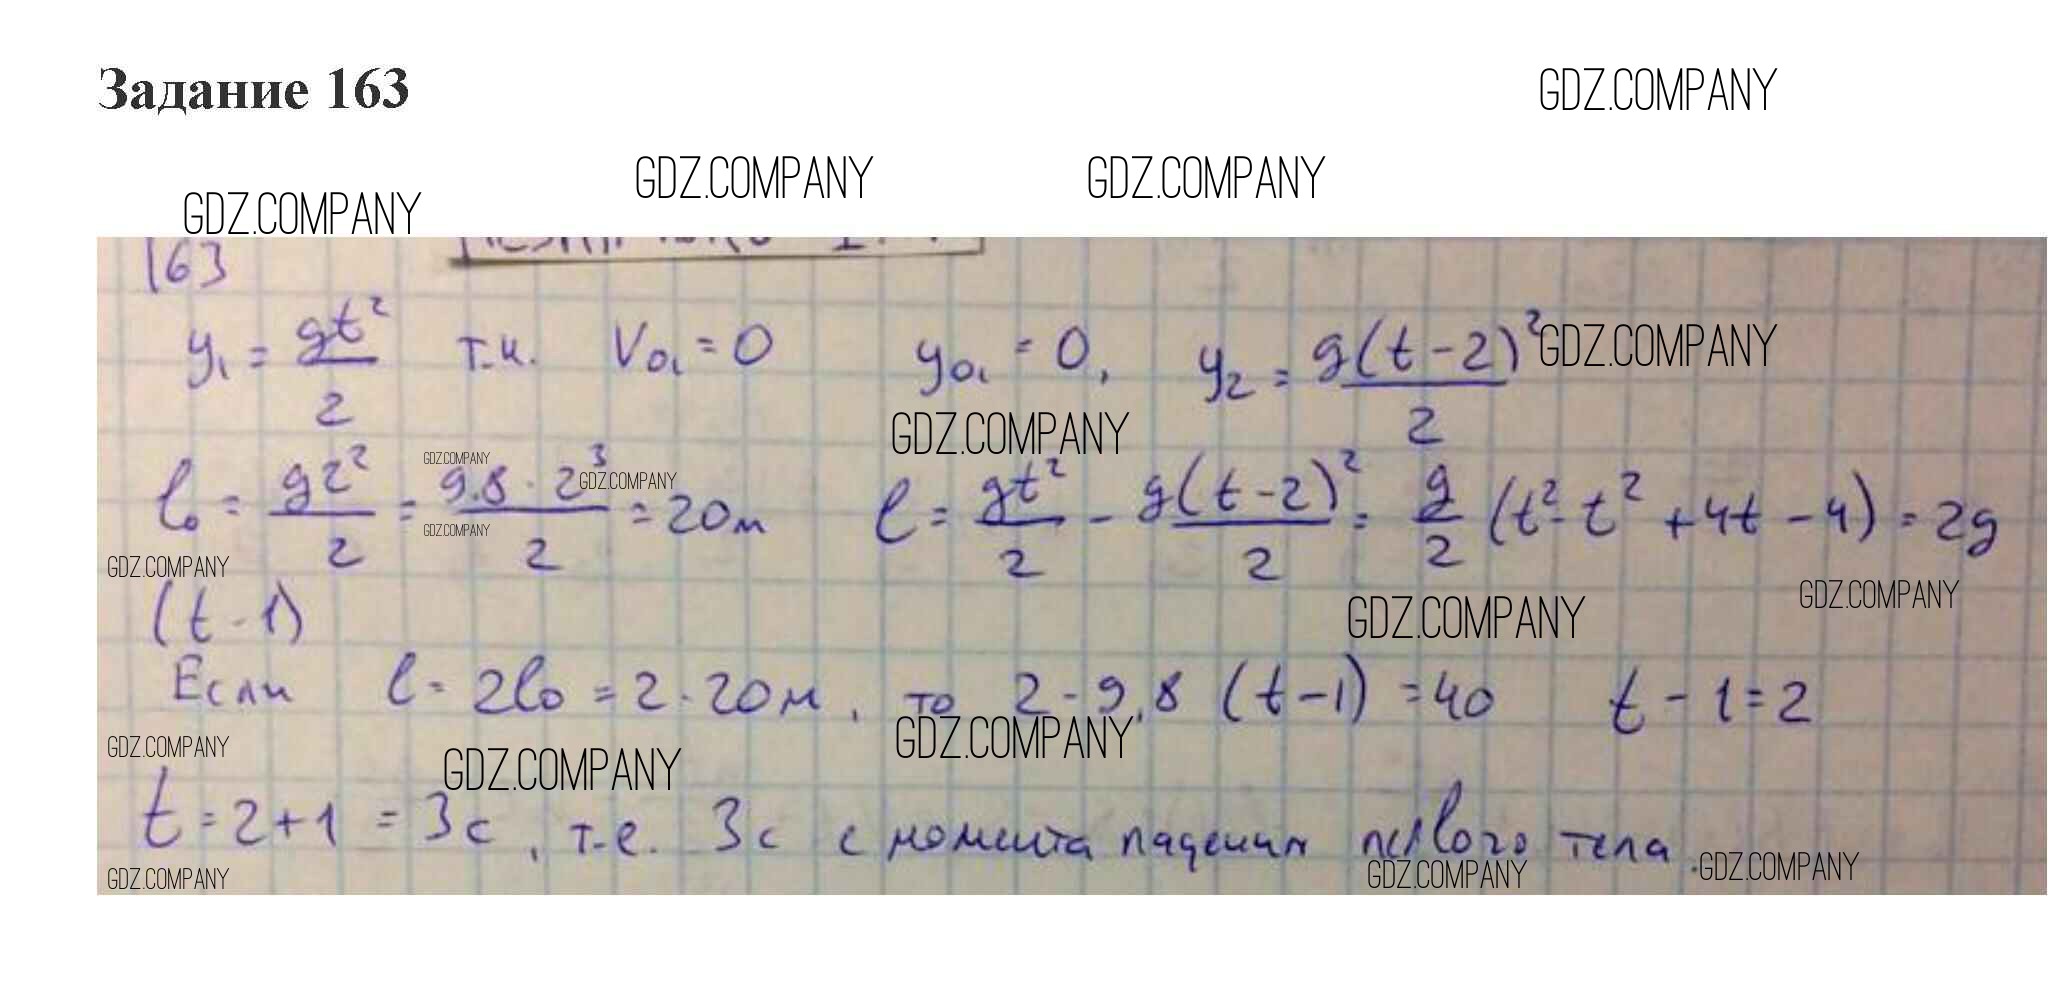 Задание 163
GDZ.COMPANY
GDZ.COMPANY GDZ.COMPANY
GDZ.COMPANY
163
y₁ = gt²/2 т.к. V₀₁ = 0 y₀₁ = 0, y₂ = g(t-2)²/2 GDZ.COMPANY
GDZ.COMPANY
GDZ.COMPANY
GDZ.COMPANY
l₀ = g2²/2 = 9.8 · 2³/2 = 20м l = gt²/2 - g(t-2)²/2 = g/2 (t² - t² + 4t - 4) = 2g
GDZ.COMPANY
GDZ.COMPANY
GDZ.COMPANY
GDZ.COMPANY
(t - 1)
Если l = 2l₀ = 2 · 20м, то 2 - 9,8 (t - 1) = 40 t - 1 = 2
GDZ.COMPANY
GDZ.COMPANY
GDZ.COMPANY
t = 2 + 1 = 3с, т.е. 3с с момента падения первого тела.
GDZ.COMPANY
GDZ.COMPANY
GDZ.COMPANY